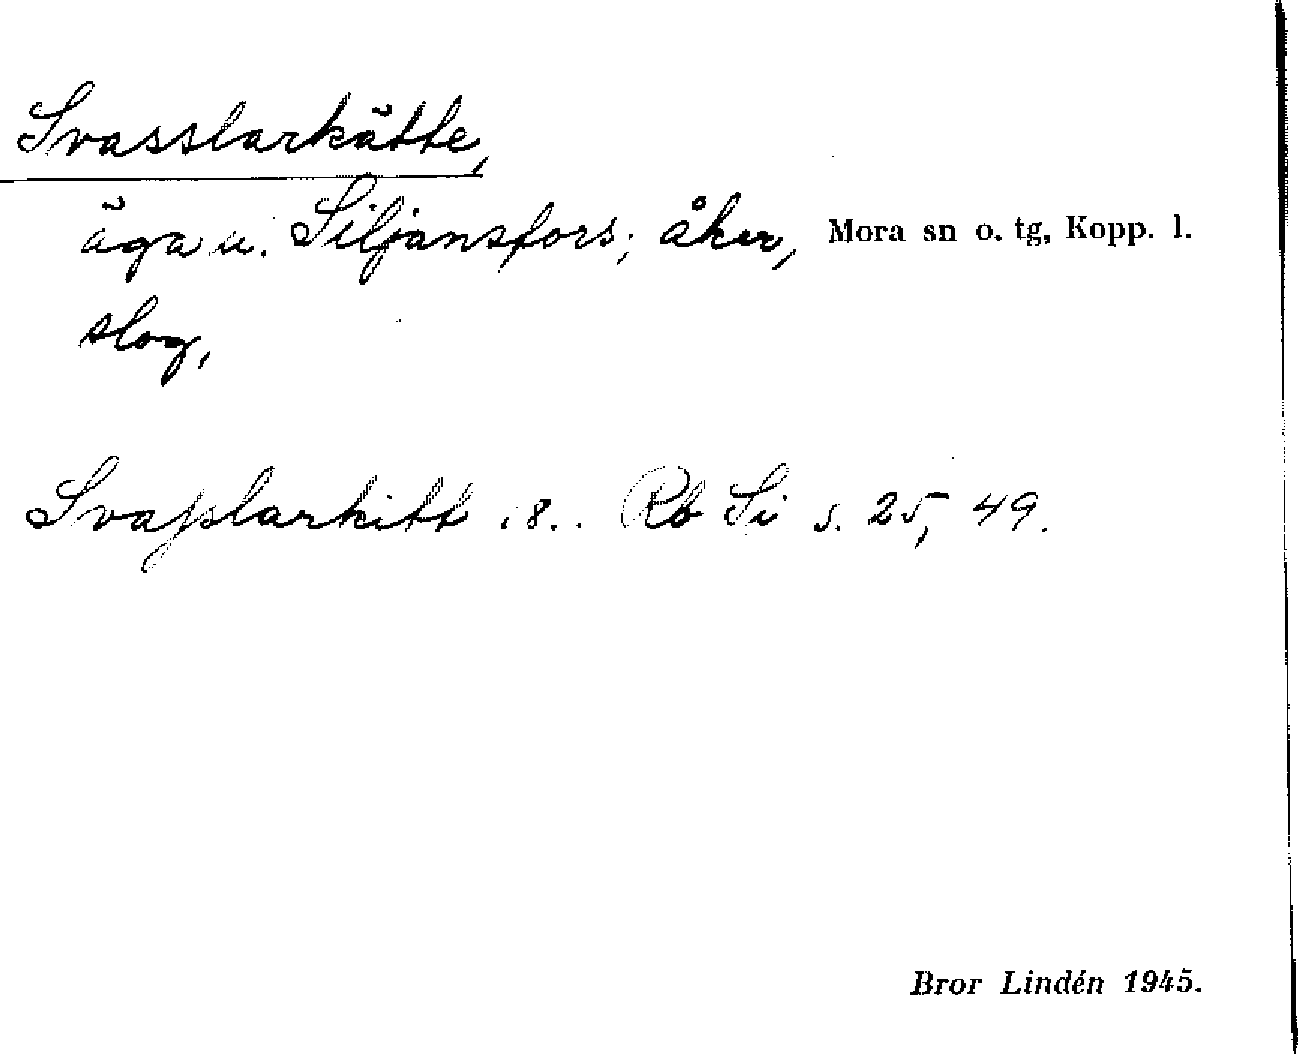 Svasslarkätte,
äga u. Siljansfors; åker, Mora sn o. tg, Kopp. l.
slog,
Svasslarkitt 18.. Rb Si s. 25, 49.
Bror Lindén 1945.